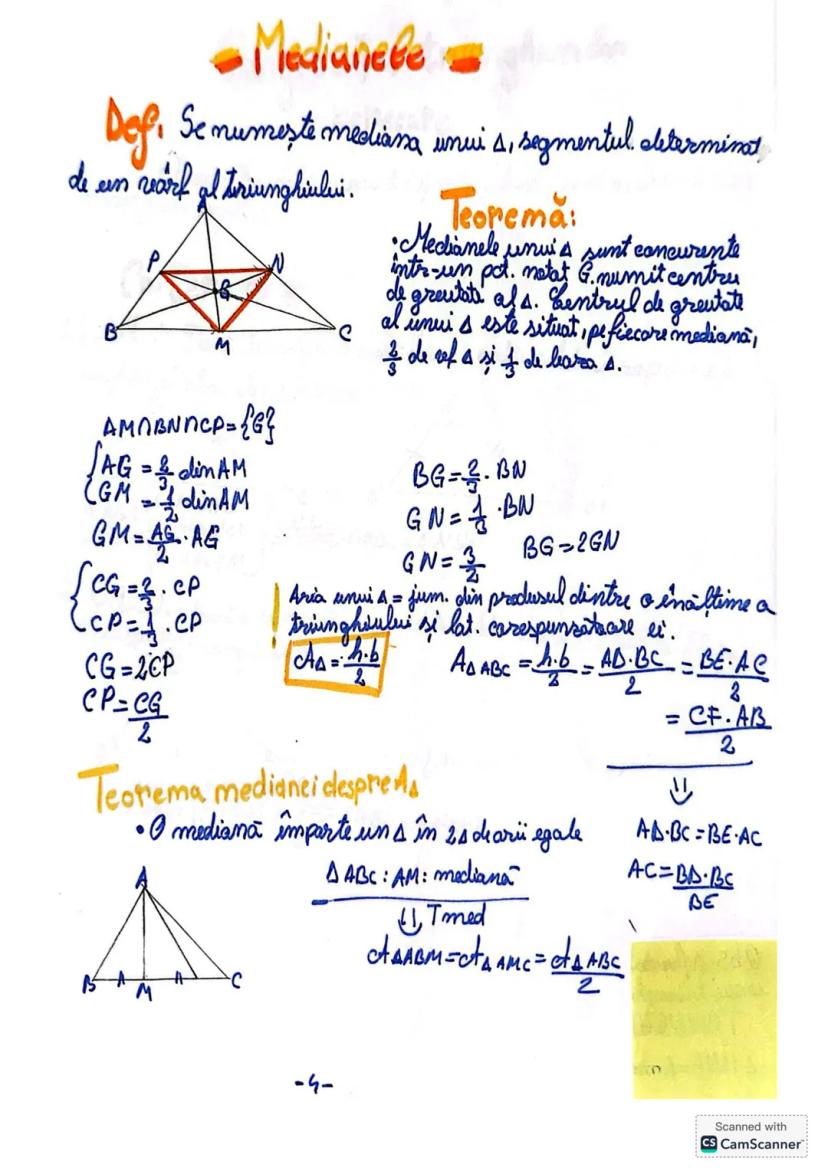 - Medianele -
Def. Se numește mediana unui Δ, segmentul determinat
de un vârf al triunghiului.
A
P
N
G
B
M
C
Teoremă:
• Medianele unui Δ sunt concurente
într-un pct. notat G. numit centru
de greutate al Δ. Centrul de greutate
al unui Δ este situat, pe fiecare mediană,
2/3 de vf Δ și 1/3 de baza Δ.
AM∩BN∩CP={G}
{AG = 2/3 din AM
GM = 1/2 din AM
GM = AG/2 · AG
{CG = 2/3 · CP
CP = 1/3 · CP
CG = 2CP
CP = CG/2
BG = 2/3 · BN
GN = 1/3 · BN
GN = 3/2
BG = 2GN
! Aria unui Δ = jum. din produsul dintre o înălțime a
triunghiului și lat. corespunzătoare ei.
AΔ = h·b/2
AΔABC = h·b/2 = AD·BC/2 = BE·AC/2
= CF·AB/2
⇓
AD·BC = BE·AC
AC = BD·BC/BE
Teorema medianei despre AΔ
• O mediană împarte un Δ în 2Δ de arii egale
Δ ABC : AM : mediană
⇓ Tmed
AΔABM = AΔAMC = AΔABC/2
A
B
M
C
-4-
Scanned with
CS CamScanner